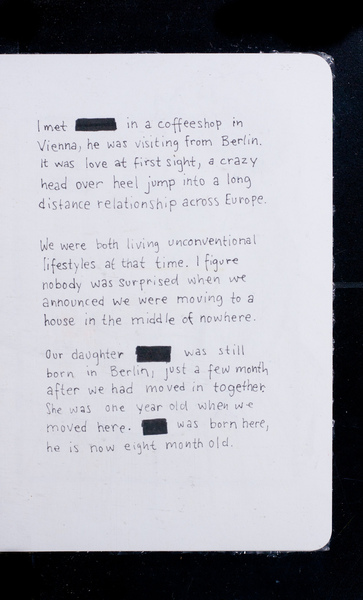 I met in a coffeeshop in
Vienna, he was visiting from Berlin.
It was love at first sight, a crazy
head over heel jump into a long
distance relationship across Europe.
We were both living unconventional
lifestyles at that time. I figure
nobody was surprised when we
announced we were moving to a
house in the middle of nowhere.
Our daughter was still
born in Berlin, just a few month
after we had moved in together.
She was one year old when we
moved here. was born here,
he is now eight month old.